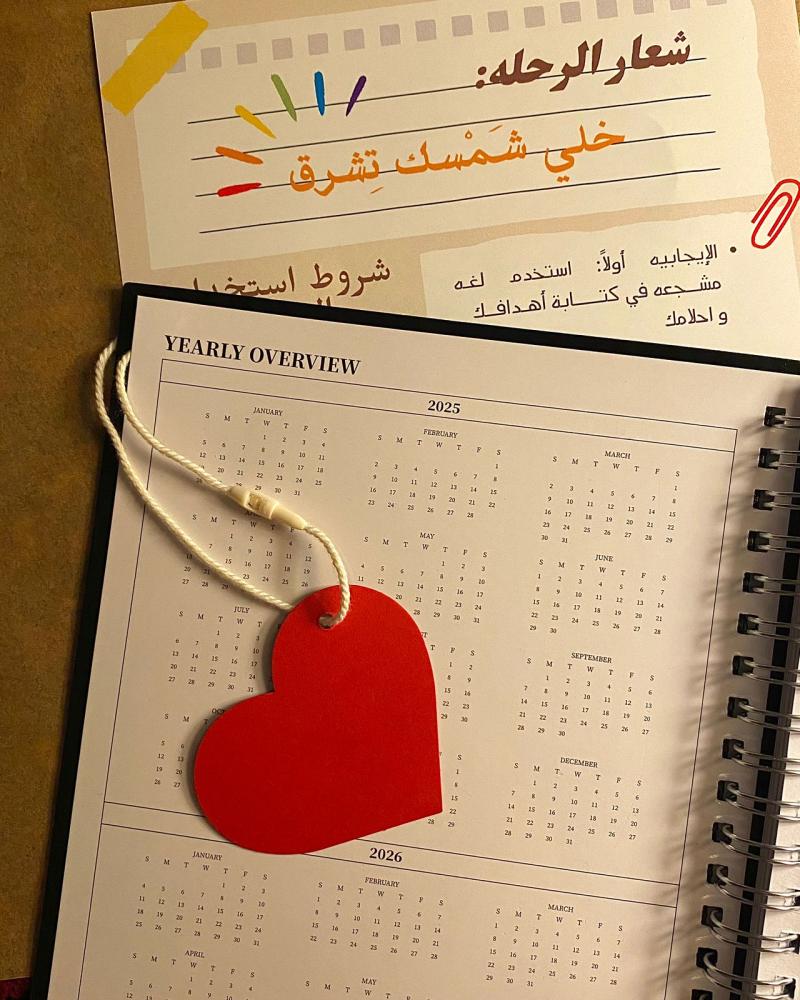 شعار الرحله:
خلي شَمْسك تِشرق
شروط استخدا
• الإيجابيه أولاً: استخدم لغه
مشجعه في كتابة أهدافك
و احلامك
YEARLY OVERVIEW
2025
JANUARY
S M T W T F S
1 2 3 4
5 6 7 8 9 10 11
12 13 14 15 16 17 18
21 22 23 24 25
29 30 31
FEBRUARY
S M T W T F S
1
2 3 4 5 6 7 8
9 10 11 12 13 14 15
16 17 18 19 20 21 22
23 24 25 26 27 28
MARCH
S M T W T F S
1
2 3 4 5 6 7 8
9 10 11 12 13 14 15
16 17 18 19 20 21 22
23 24 25 26 27 28 29
30 31
7 8 9 10 11 12
14 15 16 17 18 19
20 21 22 23 24 25 26
27 28 29 30
MAY
S M T W T F S
1 2 3
4 5 6 7 8 9 10
11 12 13 14 15 16 17
20 21 22 23 24
JUNE
S M T W T F S
1 2 3 4 5 6 7
8 9 10 11 12 13 14
15 16 17 18 19 20 21
22 23 24 25 26 27 28
29 30
JULY
S M T W T
1 2
6 7 8 9
13 14 15 16
20 21 22 23
27 28 29 30
F S
1 2
8 9
15 16
22 23
29 30
SEPTEMBER
S M T W T F S
1 2 3 4 5 6
7 8 9 10 11 12 13
14 15 16 17 18 19 20
21 22 23 24 25 26 27
28 29 30
5 6
12 13
19 20
26 27
S
1
8
15
22
28 29
DECEMBER
S M T W T F S
1 2 3 4 5 6
7 8 9 10 11 12 13
14 15 16 17 18 19 20
21 22 23 24 25 26 27
28 29 30 31
2026
JANUARY
S M T W T F S
1 2 3
4 5 6 7 8 9 10
11 12 13 14 15 16 17
18 19 20 21 22 23 24
25 26 27 28 29 30 31
FEBRUARY
S M T W T F S
1 2 3 4 5 6 7
8 9 10 11 12 13 14
15 16 17 18 19 20 21
22 23 24 25 26 27 28
MARCH
S M T W T F S
1 2 3 4 5 6 7
8 9 10 11 12 13 14
15 16 17 18 19 20 21
22 23 24 25 26 27 28
29 30 31
APRIL
S M T W T F S
1 2 3 4
5 6 7 8 9 10 11
MAY
S M T W T F S